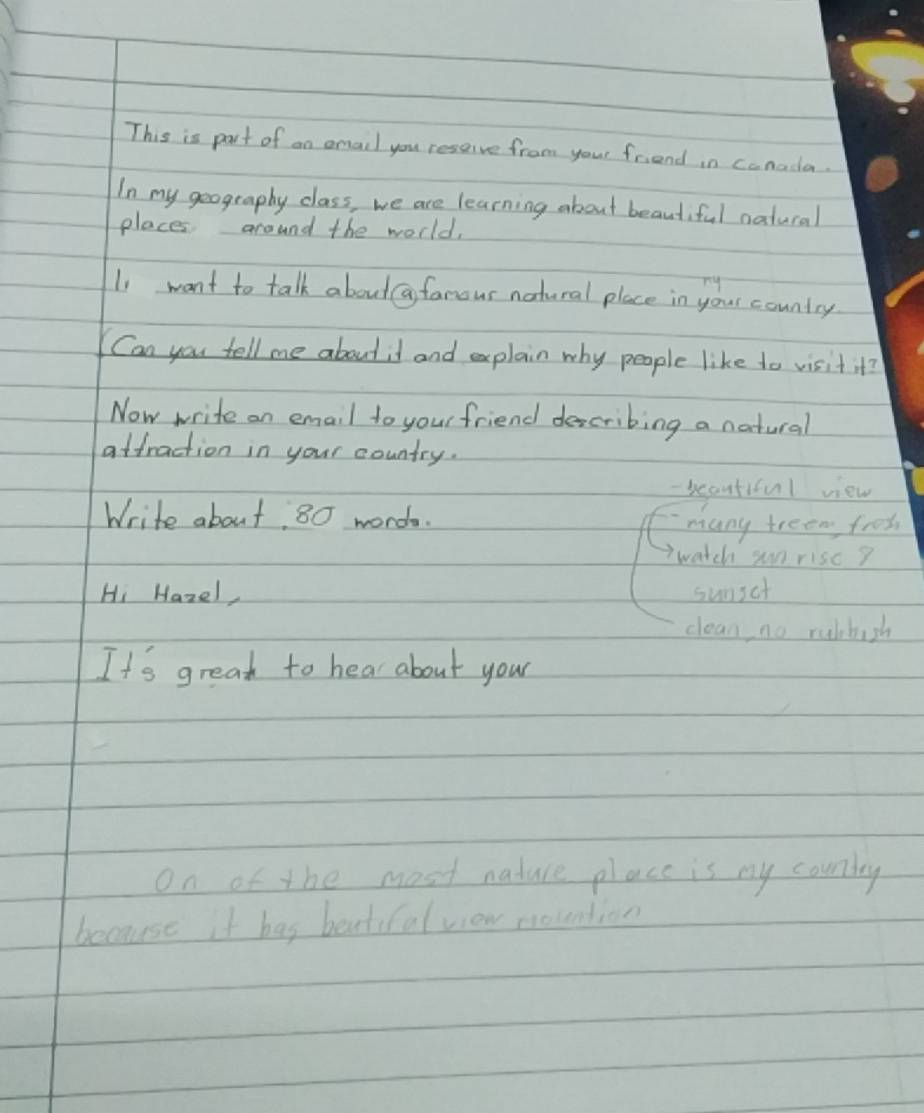 This is part of an email you reseive from your friend in canada.
In my geography class, we are learning about beautiful natural
places around the world.
I want to talk about a famous natural place in your country.
my
Can you tell me about it and explain why people like to visit it?
Now write an email to your friend describing a natural
attraction in your country.
Write about 80 words.
- beautiful view
- many treem, fresh
watch sun rise &
sunset
clean, no rubbish
Hi Hazel,
It's great to hear about your
On of the most nature place is my country
because it has beutiful view mountion